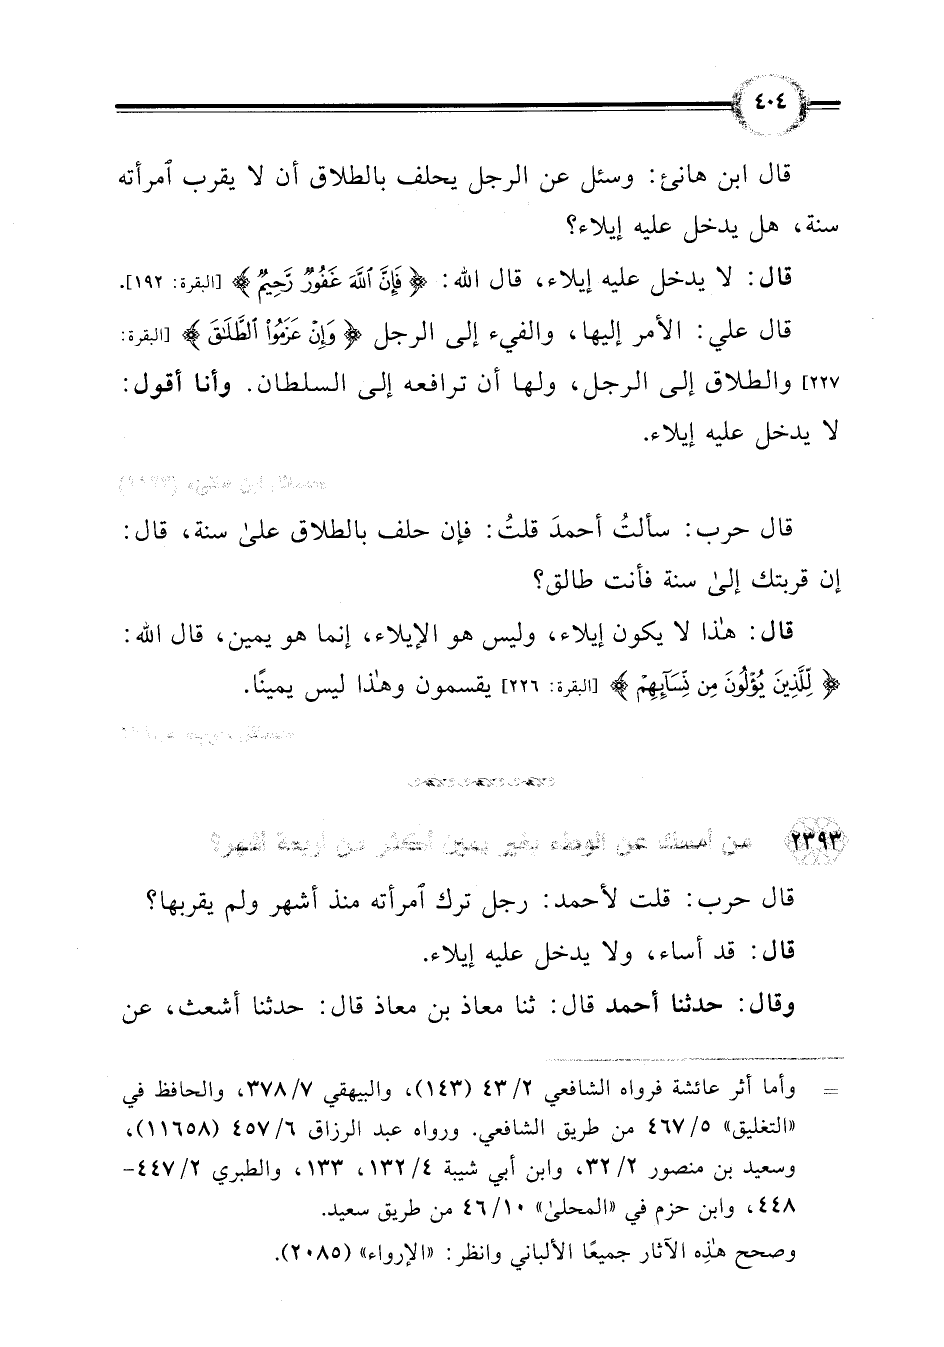 ٤٠٤
قال ابن هانئ: وسئل عن الرجل يحلف بالطلاق أن لا يقرب ٱمرأته
سنة، هل يدخل عليه إيلاء؟
قال: لا يدخل عليه إيلاء، قال الله: ﴿فَإِنَّ ٱللَّهَ غَفُورٌ رَّحِيمٌ﴾ [البقرة: ١٩٢].
قال علي: الأمر إليها، والفيء إلى الرجل ﴿وَإِنْ عَزَمُوا۟ ٱلطَّلَٰقَ﴾ [البقرة:
٢٢٧] والطلاق إلى الرجل، ولها أن ترافعه إلى السلطان. وأنا أقول:
لا يدخل عليه إيلاء.
مسائل ابن هانئ (١١٩٣)
قال حرب: سألتُ أحمدَ قلتُ: فإن حلف بالطلاق علىٰ سنة، قال:
إن قربتك إلىٰ سنة فأنت طالق؟
قال: هٰذا لا يكون إيلاء، وليس هو الإيلاء، إنما هو يمين، قال الله:
﴿لِّلَّذِينَ يُؤْلُونَ مِن نِّسَآئِهِمْ﴾ [البقرة: ٢٢٦] يقسمون وهٰذا ليس يمينًا.
مسائل حرب
٢٣٩٣ من أمسك عن الوطء بغير يمين أكثر من أربعة أشهر؟
قال حرب: قلت لأحمد: رجل ترك ٱمرأته منذ أشهر ولم يقربها؟
قال: قد أساء، ولا يدخل عليه إيلاء.
وقال: حدثنا أحمد قال: ثنا معاذ بن معاذ قال: حدثنا أشعث، عن
= وأما أثر عائشة فرواه الشافعي ٢/ ٤٣ (١٤٣)، والبيهقي ٧/ ٣٧٨، والحافظ في
«التغليق» ٥/ ٤٦٧ من طريق الشافعي. ورواه عبد الرزاق ٦/ ٤٥٧ (١١٦٥٨)،
وسعيد بن منصور ٢/ ٣٢، وابن أبي شيبة ٤/ ١٣٢، ١٣٣، والطبري ٢/ ٤٤٧-
٤٤٨، وابن حزم في «المحلىٰ» ١٠/ ٤٦ من طريق سعيد.
وصحح هٰذِه الآثار جميعًا الألباني وانظر: «الإرواء» (٢٠٨٥).